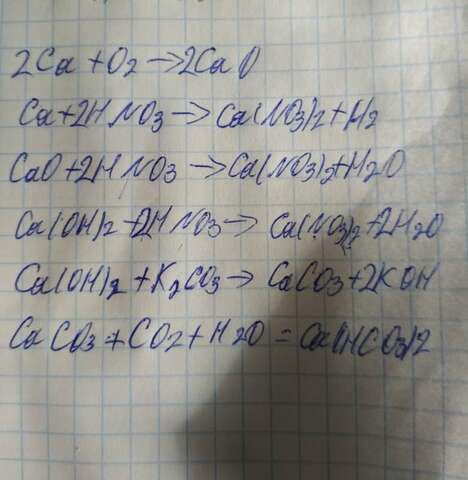 2Ca + O2 → 2CaO
Ca + 2HNO3 → Ca(NO3)2 + H2
CaO + 2HNO3 → Ca(NO3)2 + H2O
Ca(OH)2 + 2HNO3 → Ca(NO3)2 + 2H2O
Ca(OH)2 + K2CO3 → CaCO3 + 2KOH
CaCO3 + CO2 + H2O = Ca(HCO3)2